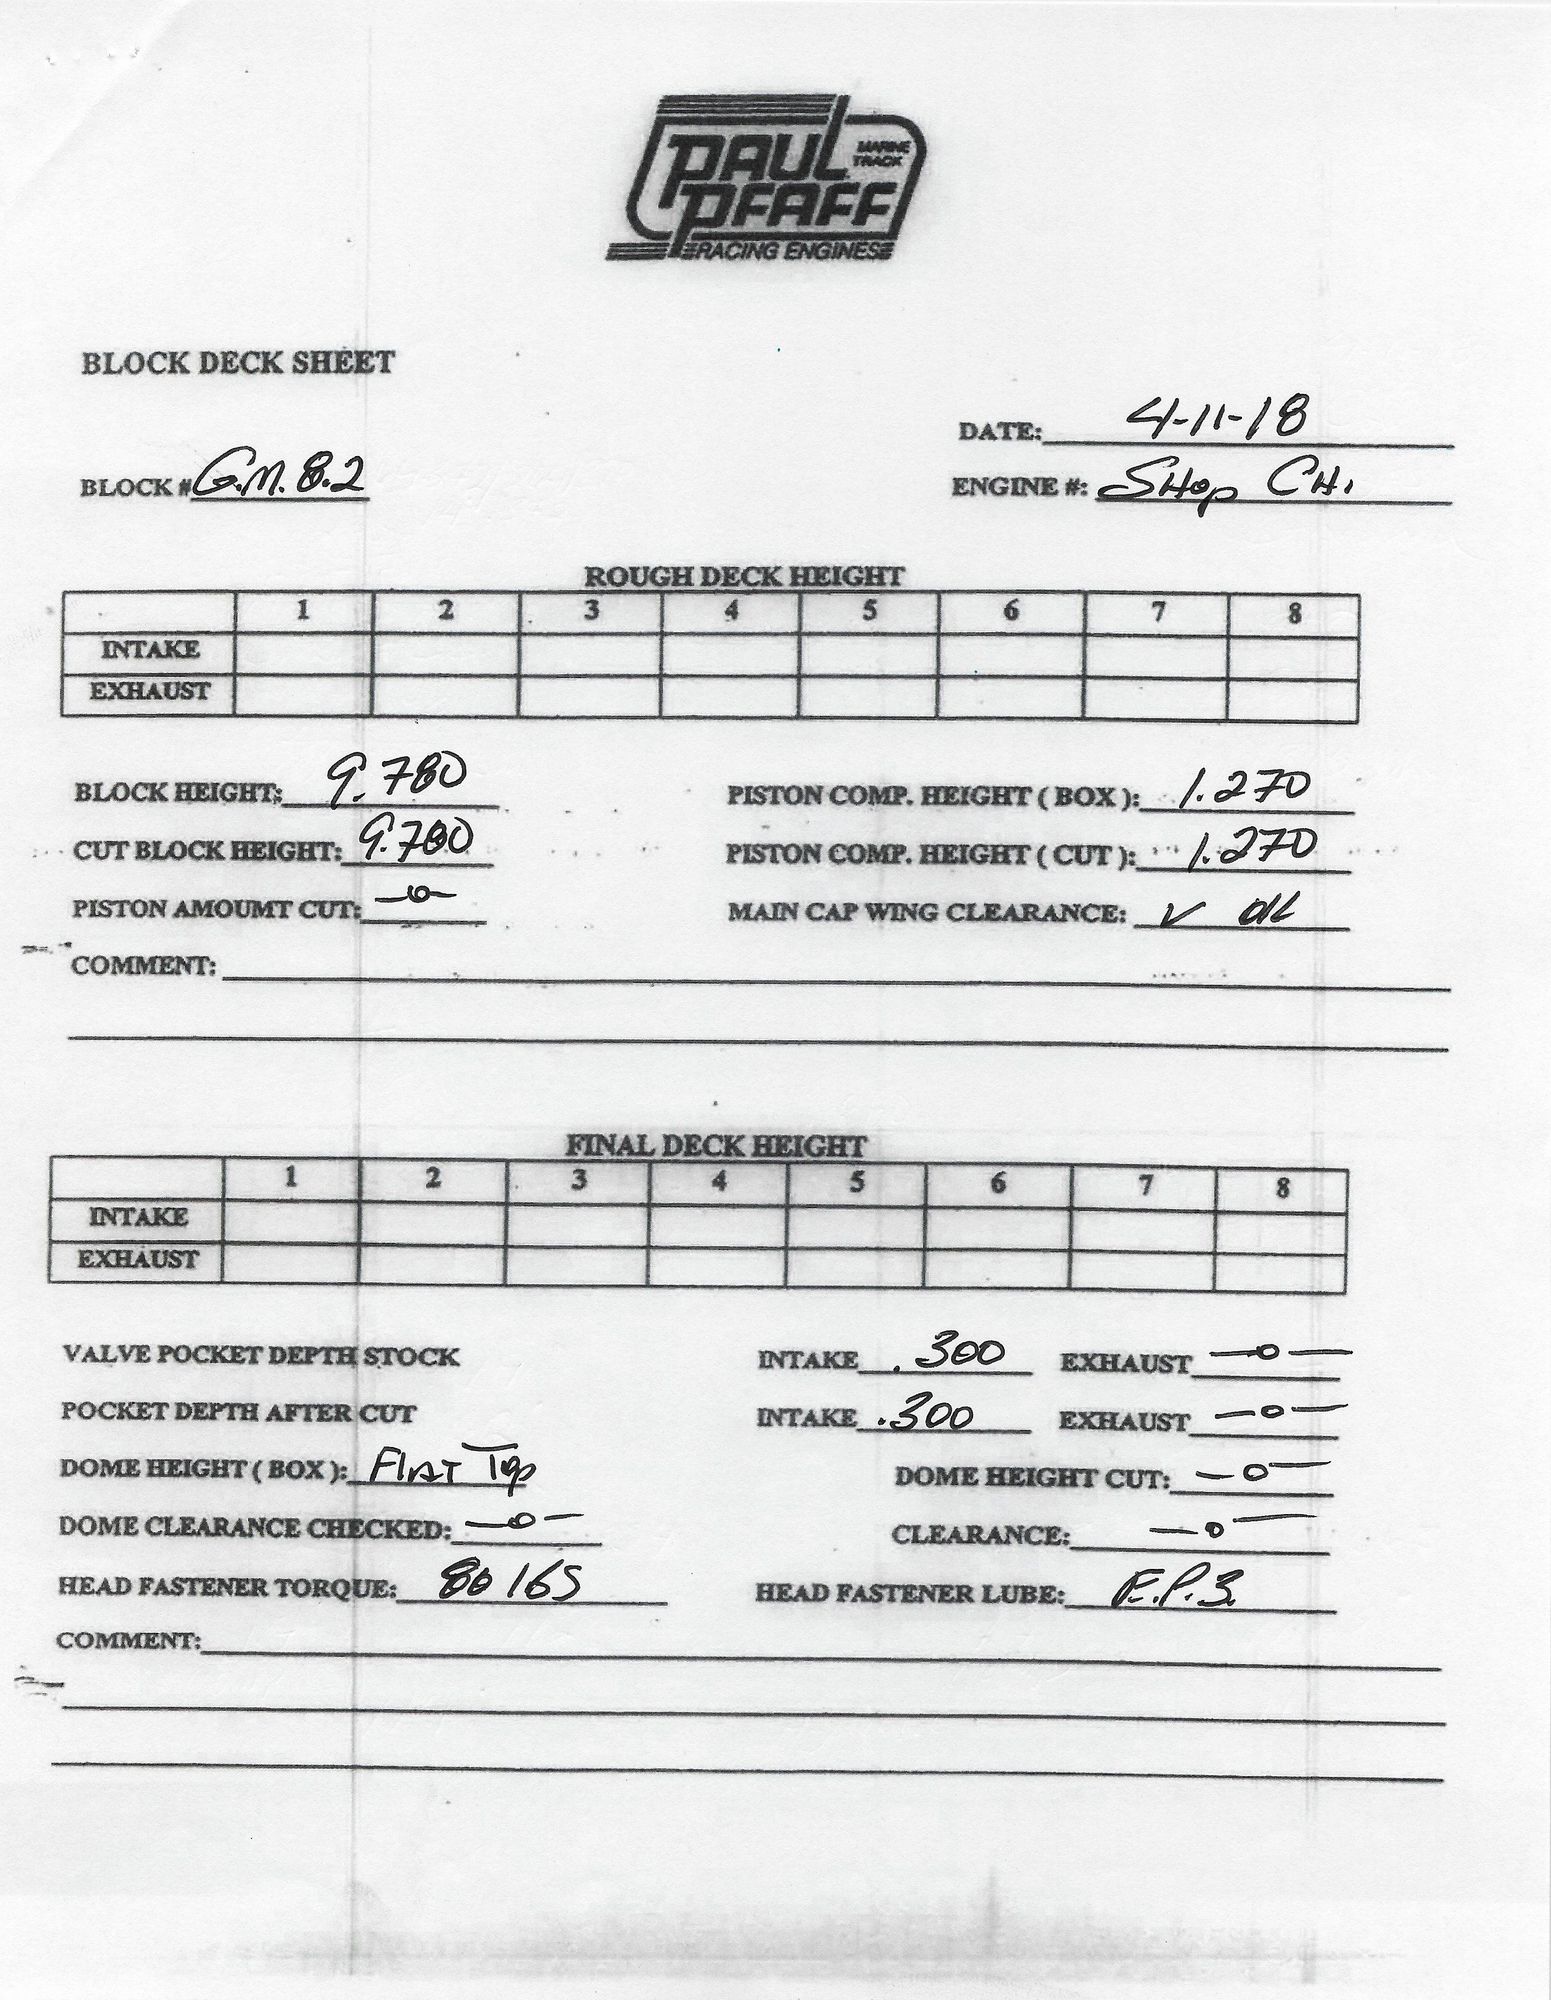 PAUL PFAFF
MARINE
TRACK
RACING ENGINES
BLOCK DECK SHEET
DATE: 4-11-18
BLOCK # G.M. 8.2
ENGINE #: SHOP CHI
ROUGH DECK HEIGHT
1 2 3 4 5 6 7 8
INTAKE
EXHAUST
BLOCK HEIGHT: 9.780 PISTON COMP. HEIGHT ( BOX ): 1.270
CUT BLOCK HEIGHT: 9.780 PISTON COMP. HEIGHT ( CUT ): 1.270
PISTON AMOUMT CUT: -0- MAIN CAP WING CLEARANCE: ✓ OK
COMMENT:
FINAL DECK HEIGHT
1 2 3 4 5 6 7 8
INTAKE
EXHAUST
VALVE POCKET DEPTH STOCK INTAKE .300 EXHAUST -0-
POCKET DEPTH AFTER CUT INTAKE .300 EXHAUST -0-
DOME HEIGHT ( BOX ): FlAT Top DOME HEIGHT CUT: -0-
DOME CLEARANCE CHECKED: -0- CLEARANCE: -0-
HEAD FASTENER TORQUE: 80 165 HEAD FASTENER LUBE: E.P.3.
COMMENT: